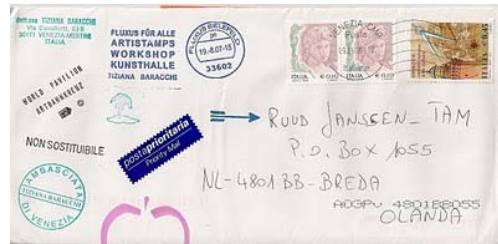 dott.ssa TIZIANA BARACCHI
Via Cavallotti, 83-B
30171 VENEZIA-MESTRE
ITALIA
FLUXUS FÜR ALLE
ARTISTAMPS
WORKSHOP
KUNSTHALLE
TIZIANA BARACCHI
FLUXUS BIELEFELD
19.-8.07-15
33602
VENEZIA CMP
Poste
ITALIA
ITALIA
ITALIA
WORLD PAVILION
NON SOSTITUIBILE
postaprioritaria
Priority Mail
AMBASCIATA
TIZIANA BARACCHI
DI VENEZIA
RUUD JANSSEN-TAM
P.O. BOX 1055
NL-4801BB-BREDA
OLANDA